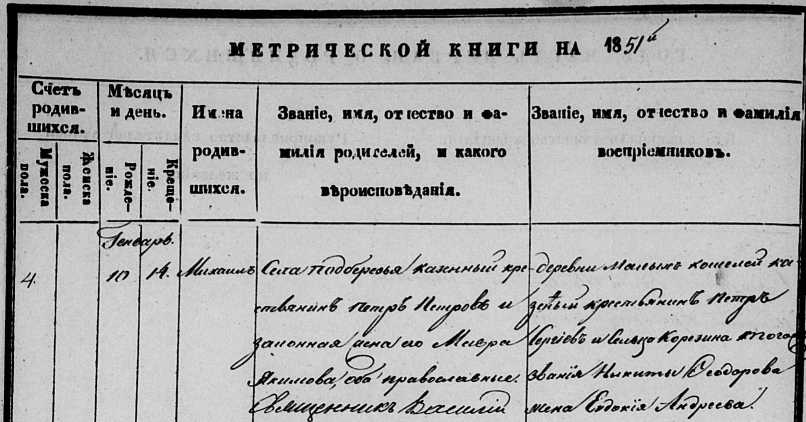 МЕТРИЧЕСКОЙ КНИГИ НА 1851й
Счетъ родив-шихся.
Мужеска пола.
Женска пола.
Мѣсяцъ и день.
Рожде-ніе.
Креще-ніе.
Имена родив-шихся.
Званіе, имя, отчество и фа-
милія родителей, и какого
вѣроисповѣданія.
Званіе, имя, отчество и фамилія
воспріемниковъ.
Генварь.
4. 10 14. Михаилъ
Села Подберезья казенный кре-
стьянинъ Петръ Петровъ и
законная жена его Мавра
Якимова, оба православные.
Священникъ Василій
деревни Малыхъ Кошелей ка-
зеный крестьянинъ Петръ
Сергіевъ и Сельца Корезина того
званія Никиты Ѳеодорова
жена Евдокія Андреева.